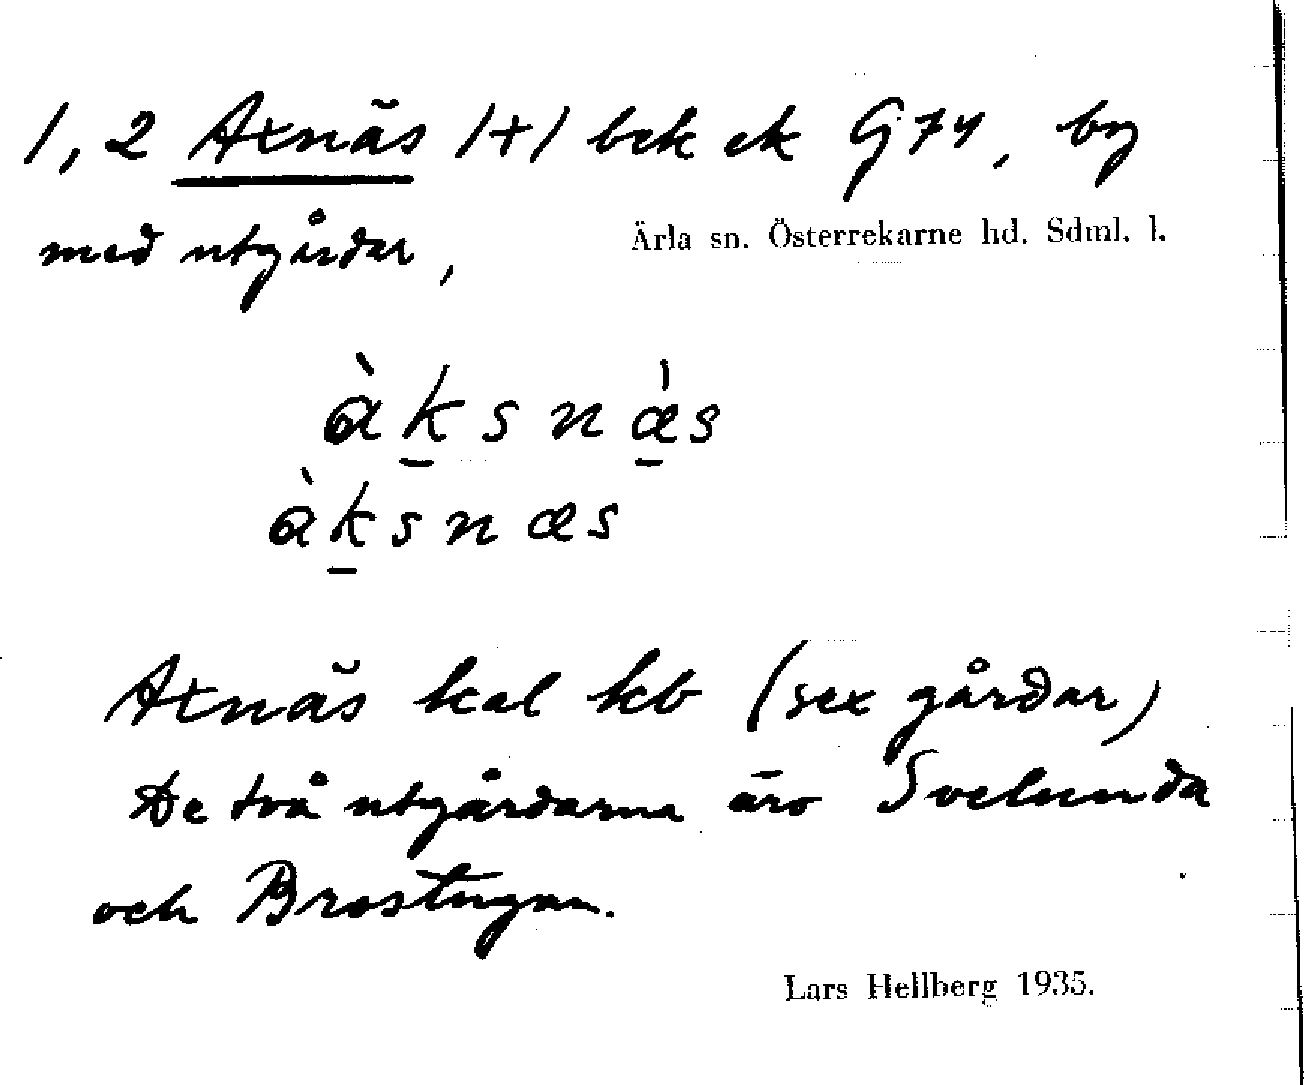 1, 2 Axnäs /+/ bek ek G 74, by
med utgårdar,
Ärla sn. Österrekarne hd. Sdml. l.
àksnæ̀s
àksnæs
Axnäs kal kb (sex gårdar)
De två utgårdarna äro Svelunda
och Brostugan.
Lars Hellberg 1935.